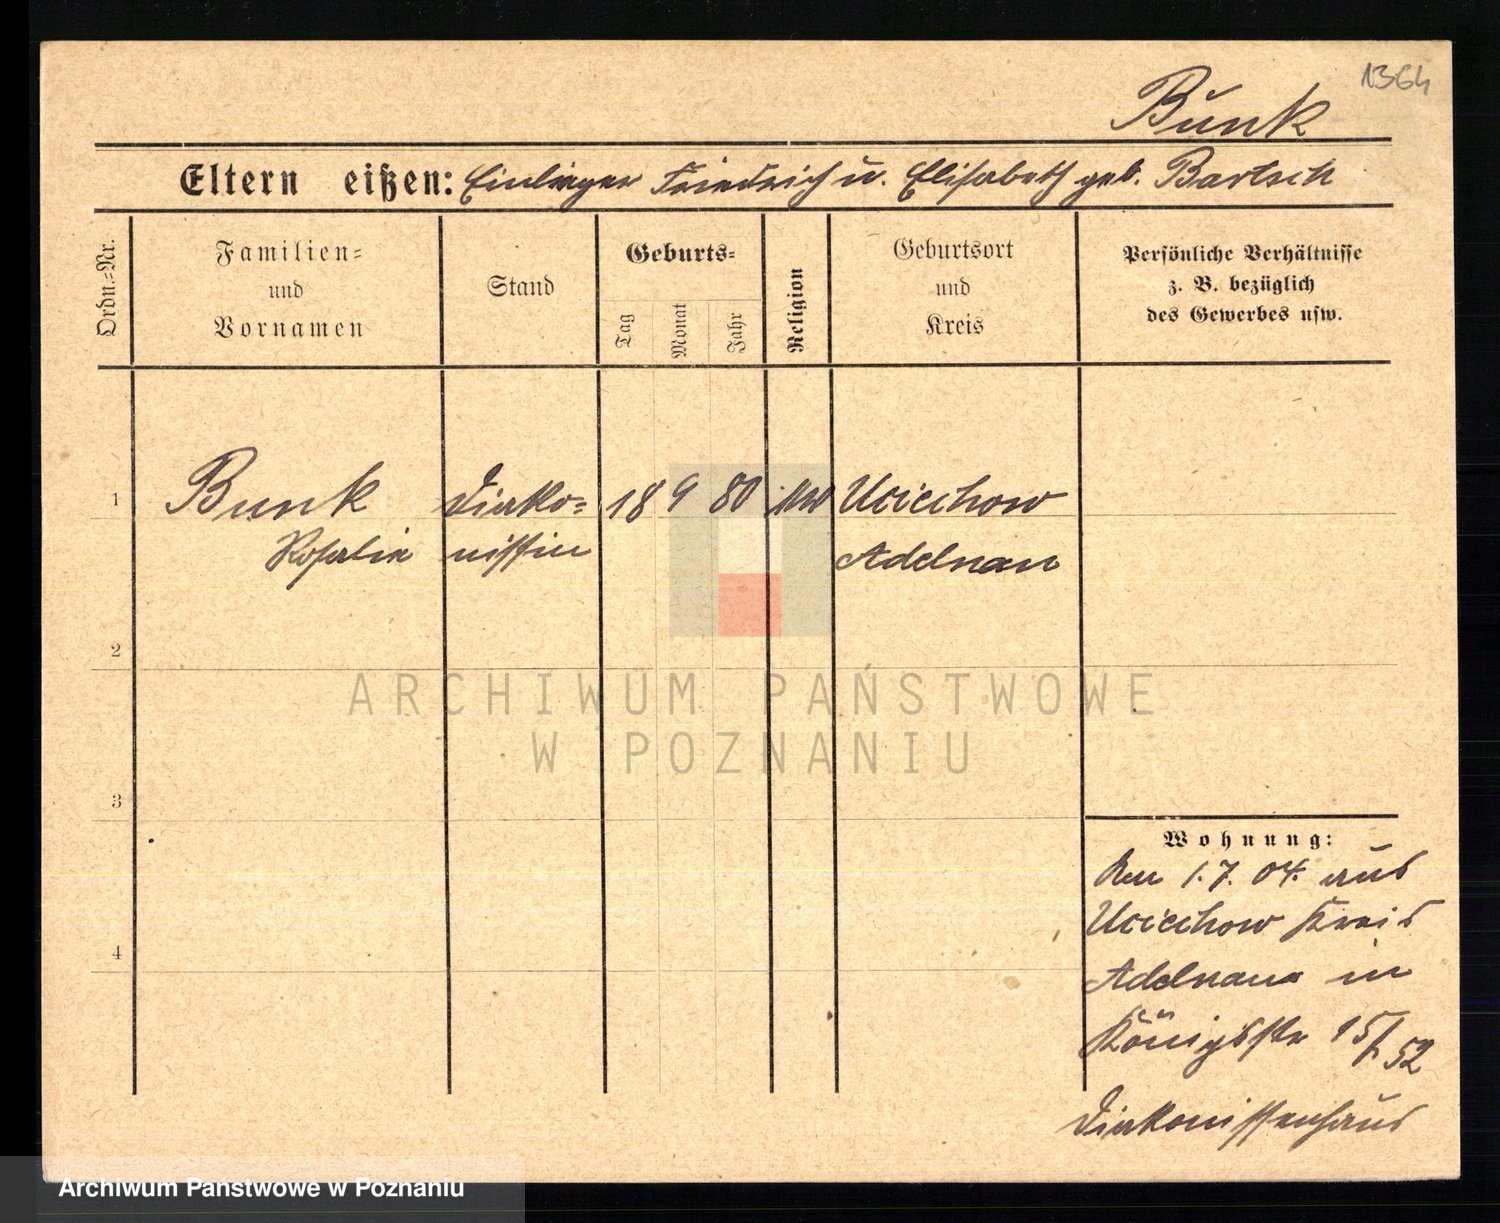 1364
Bunk
Eltern eißen: Einlieger Friedrich u. Elisabeth geb. Bartsch
Ordn.=Nr.
Familien=
und
Vornamen
Stand
Geburts=
Tag
Monat
Jahr
Religion
Geburtsort
und
Kreis
Persönliche Verhältnisse
z. B. bezüglich
des Gewerbes usw.
1
Bunk
Rosalie
Diako=
nissin
18 9 80
Uciechow
Adelnau
2
3
4
Wohnung:
Am 1.7.04. aus
Uciechow Kreis
Adelnau in
Königsstr 15/52
Diakonissenhaus
ARCHIWUM PAŃSTWOWE
W POZNANIU
Archiwum Państwowe w Poznaniu